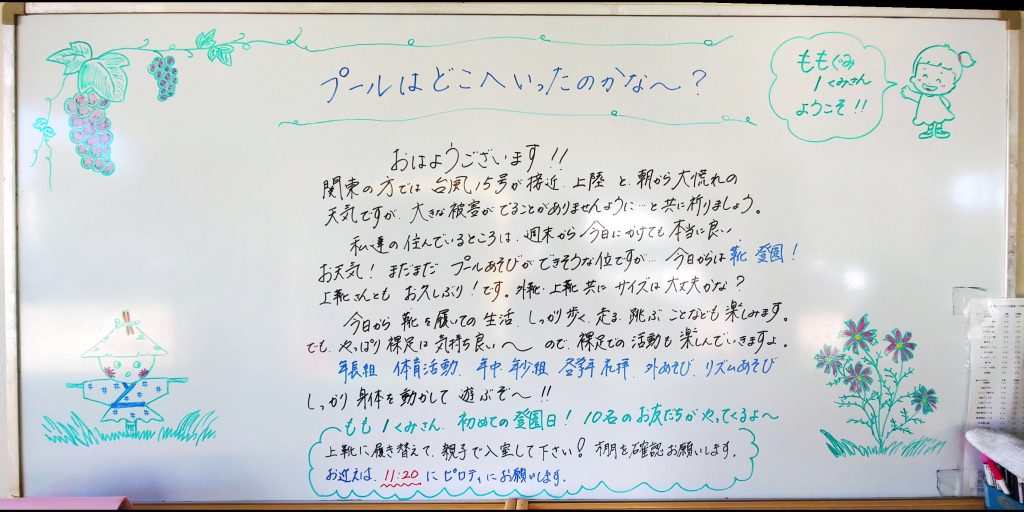 プールはどこへいったのかな〜？
ももぐみ
1くみさん
ようこそ!!
おはようございます!!
関東の方では 台風15号が接近、上陸 と、朝から大慌れの
天気ですが、大きな被害がでることがありませんように…と共に祈りましょう。
私達の住んでいるところは、週末から今日にかけても本当に良い
お天気！まだまだ プールあそびができそうな位ですが… 今日からは靴 登園！
上靴さんとも お久しぶり！です。外靴・上靴 共に サイズは大丈夫かな？
今日から 靴を履いての生活、しっかり歩く、走る、跳ぶ ことなども 楽しみます。
でも、やっぱり 裸足は 気持ち良い〜 ので、裸足での活動も 楽しんでいきますよ。
年長組 体育活動、年中 年少組 全学年礼拝、外あそび、リズムあそび
しっかり 身体を動かして 遊ぶぞ〜!!
もも1くみさん、初めての登園日！10名のお友だちが やってくるよ〜
上靴に履き替えて、親子で入室して下さい！棚を確認お願いします。
お迎えは、11:20 に ピロティにお願いします。